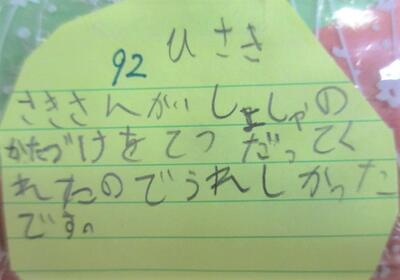 ひさき
92
さきさんがいしょしゃの
かたづけをてつだってく
れたのでうれしかった
です。